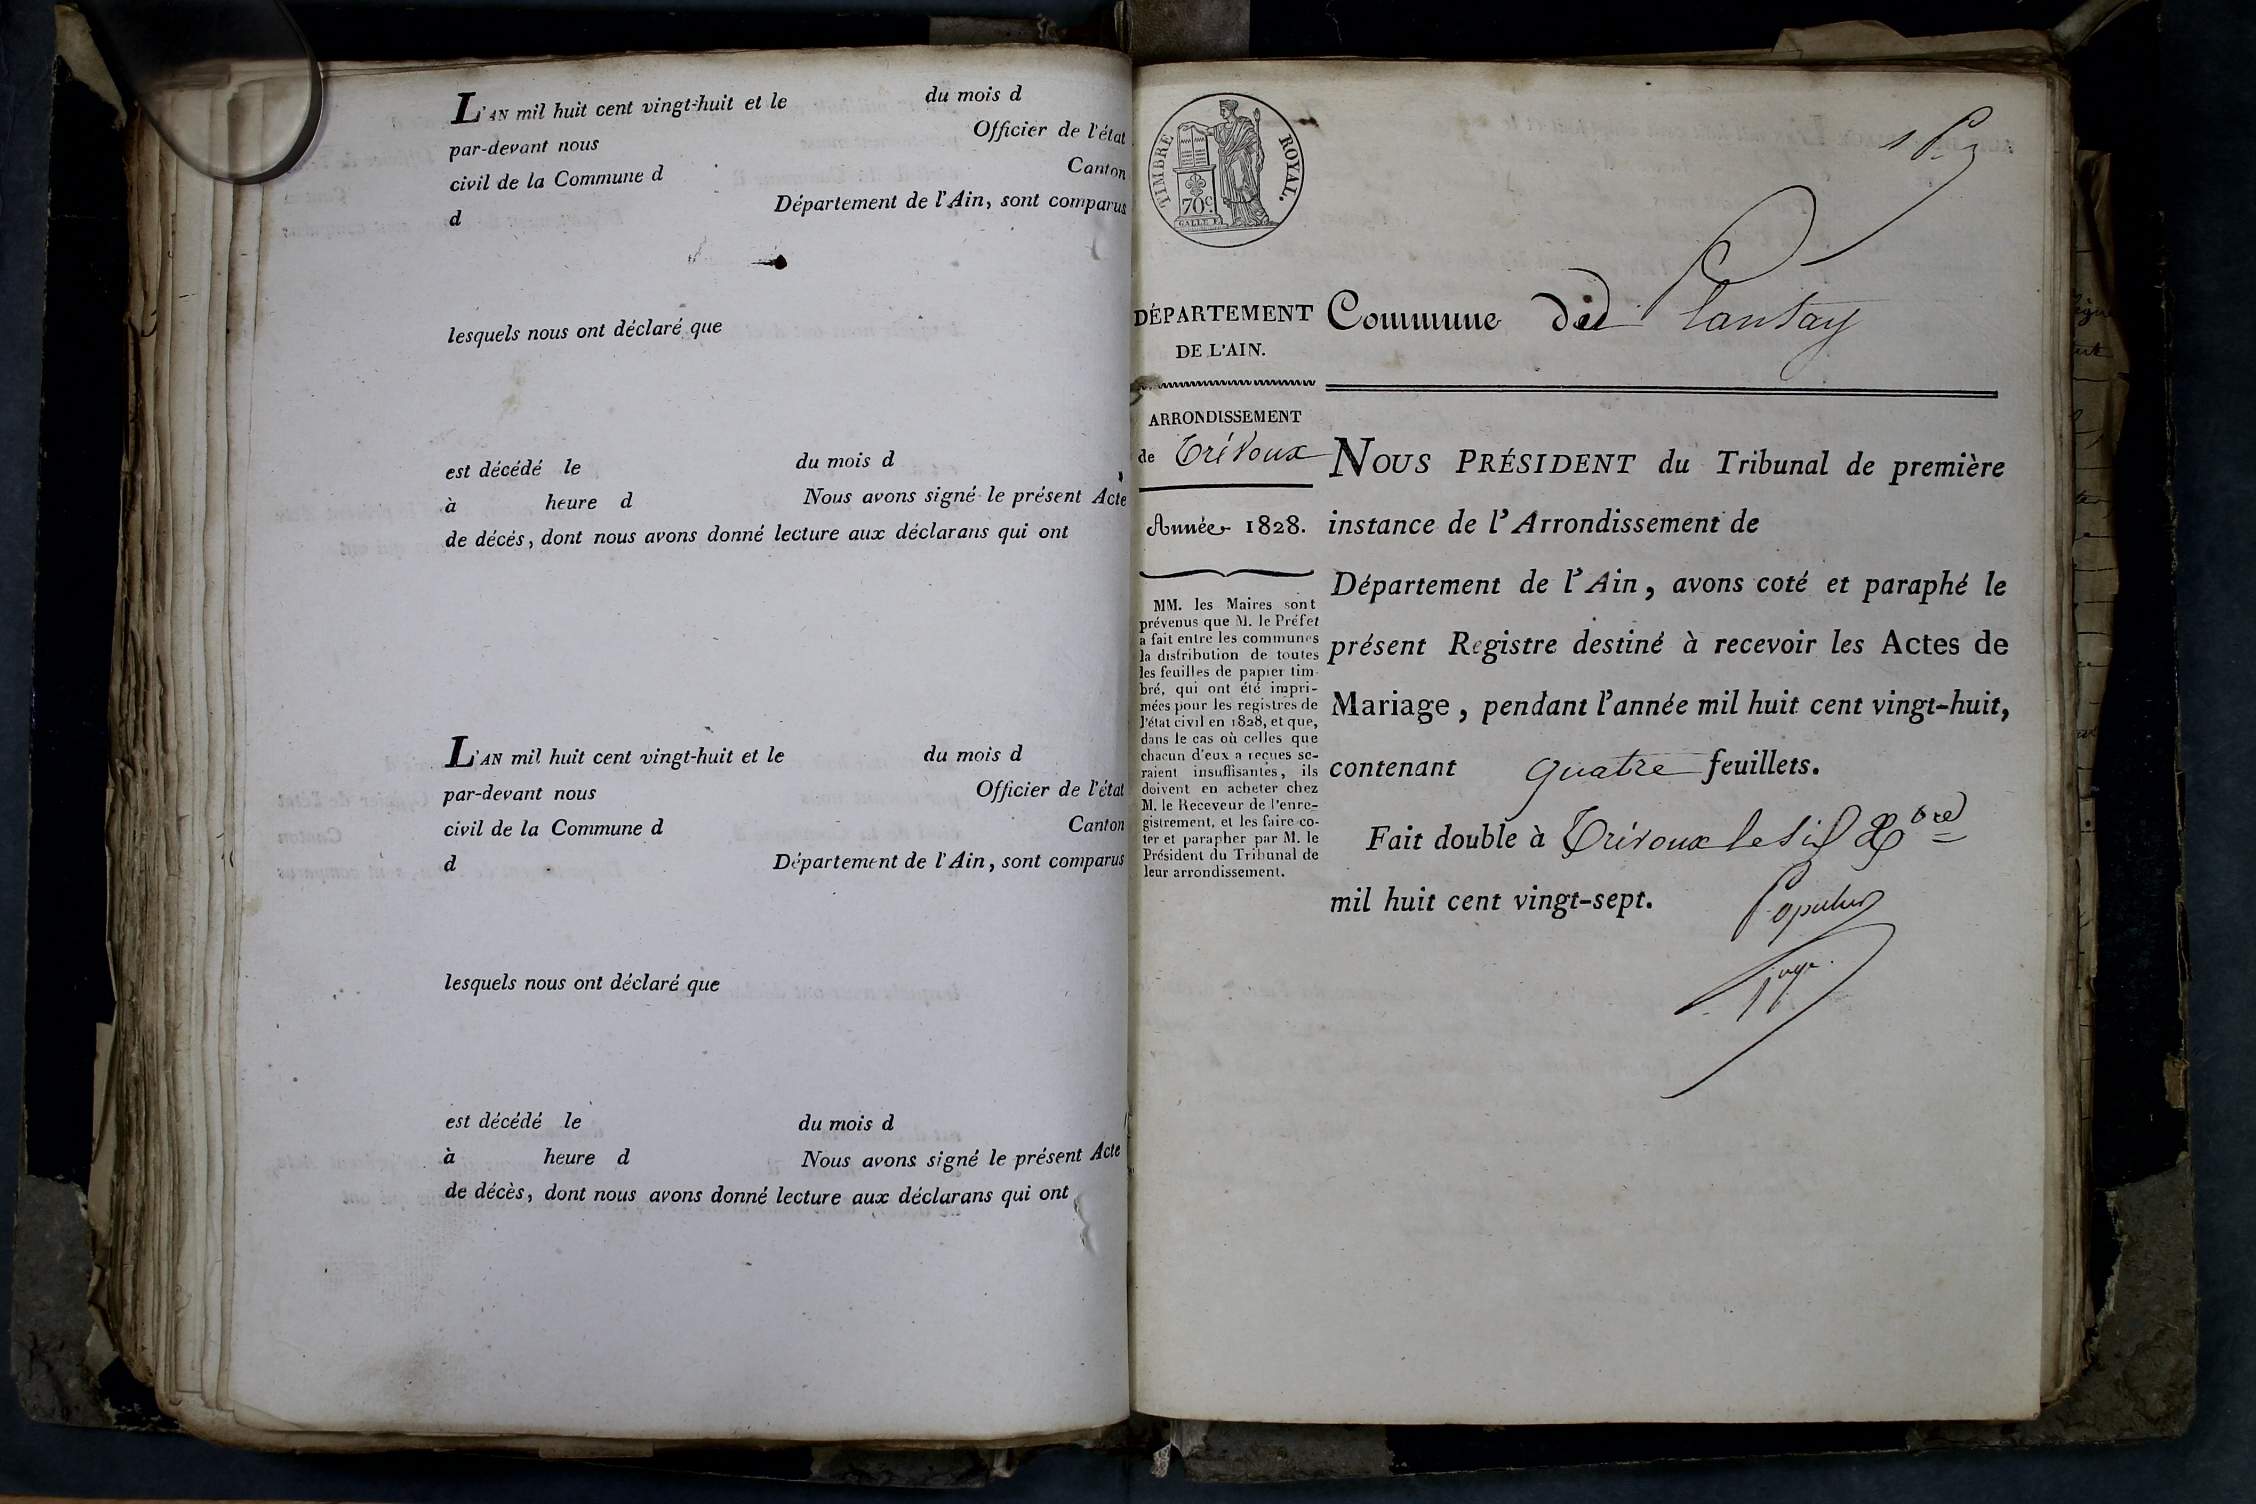 L'AN mil huit cent vingt-huit et le du mois d
par-devant nous Officier de l'état
civil de la Commune d Canton
d Département de l'Ain, sont comparus
lesquels nous ont déclaré que
est décédé le du mois d
à heure d Nous avons signé le présent Acte
de décès, dont nous avons donné lecture aux déclarans qui ont
L'AN mil huit cent vingt-huit et le du mois d
par-devant nous Officier de l'état
civil de la Commune d Canton
d Département de l'Ain, sont comparus
lesquels nous ont déclaré que
est décédé le du mois d
à heure d Nous avons signé le présent Acte
de décès, dont nous avons donné lecture aux déclarans qui ont
TIMBRE ROYAL.
70c
GALLE F.
DÉPARTEMENT
DE L'AIN.
ARRONDISSEMENT
de Trévoux
Année 1828.
MM. les Maires sont
prévenus que M. le Préfet
a fait entre les communes
la distribution de toutes
les feuilles de papier tim-
bré, qui ont été impri-
mées pour les registres de
l'état civil en 1828, et que,
dans le cas où celles que
chacun d'eux a reçues se-
raient insuffisantes, ils
doivent en acheter chez
M. le Receveur de l'enre-
gistrement, et les faire co-
ter et parapher par M. le
Président du Tribunal de
leur arrondissement.
Commune de Plantay
NOUS PRÉSIDENT du Tribunal de première
instance de l'Arrondissement de
Département de l'Ain, avons coté et paraphé le
présent Registre destiné à recevoir les Actes de
Mariage, pendant l'année mil huit cent vingt-huit,
contenant quatre feuillets.
Fait double à Trévoux le six Xbre
mil huit cent vingt-sept.
Populus
juge.